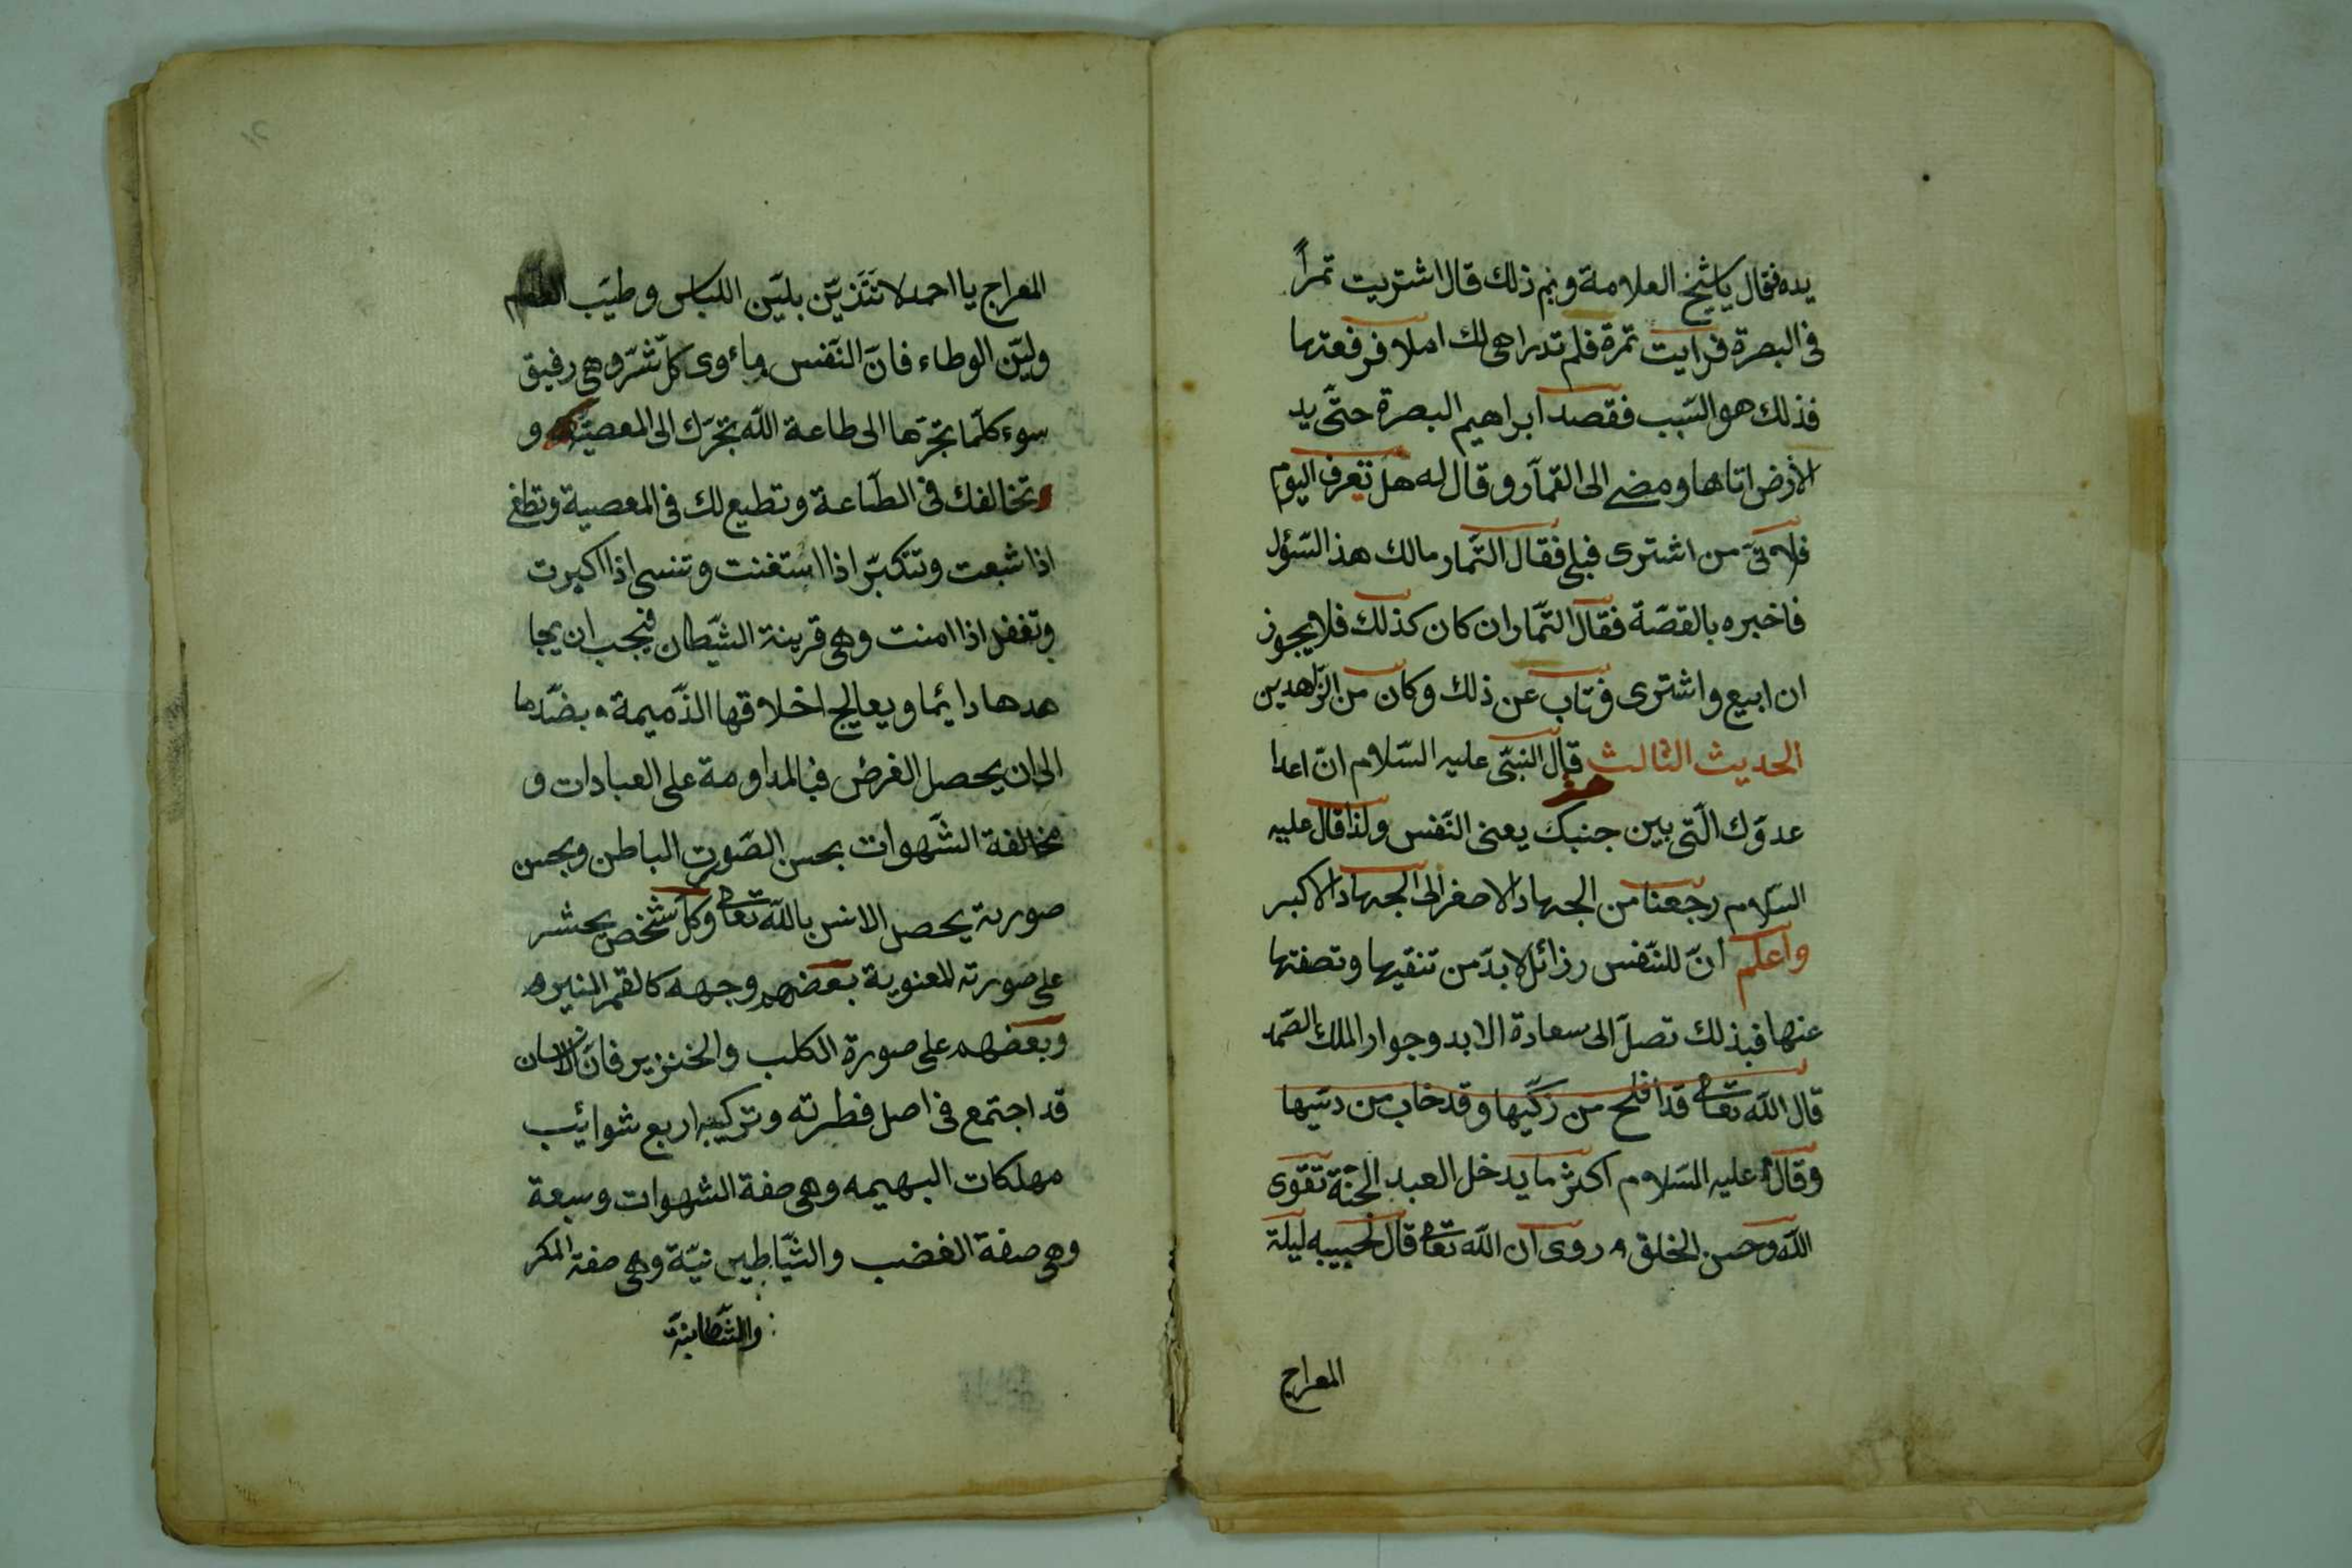 يده فقال يا شيخ العلامة وبم ذلك قال اشتريت تمراً
فى البصرة فرايت تمرة فلم تدر اهى لك املا فرفعتها
فذلك هو السّبب فقصد ابراهيم البصرة حتّى يد
الأرض اتاها ومضى الى القمّار وقال له هل تعرف اليوم
من اشترى قبلى فقال التّمار مالك هذ السّؤل
فاخبره بالقصّة فقال التّمار ان كان كذلك فلا يجوز
ان ابيع واشترى فتاب عن ذلك وكان من الزّاهدين
الحديث الثالث قال النبّى عليه السّلام انّ اعدا
عدوّك الّتى بين جنبك يعنى النّفس ولذا قال عليه
السّلام رجعنا من الجهاد الاصغر الى الجهاد الاكبر
واعلم انّ للنّفس رزائل لا بدّ من تنقيها وتصفتها
عنها فبذلك تصل الى سعادة الابد وجوار الملك الصّمد
قال اللّه تعالى قد افلح من زكّيها وقد خاب من دسّيها
وقال عليه السّلام اكثر ما يدخل العبد الجنّة تقوى
اللّه وحسن الخلق روى ان اللّه تعالى قال لحبيبه ليلة
المعراج
المعراج يا احمد لا تتزيّن بليّن اللباس وطيّب الطعام
وليّن الوطاء فانّ النّفس مأوى كلّ شرّ وهى رفيق
سوء كلّما تجرّها الى طاعة اللّه تجرّك الى المعصية و
وتخالفك فى الطّاعة وتطيع لك فى المعصية وتطغى
اذا شبعت وتتكبّر اذا استغنت وتنسى اذا اكبرت
وتغفل اذا امنت وهى قرينة الشّيطان فيجب ان يجا
هدها دائما ويعالج اخلاقها الذّميمة بضدّها
الى ان يحصل الغرض فبالمداومة على العبادات و
مخالفة الشّهوات بحسن الصّورت الباطن وبحسن
صورته يحصل الانس باللّه تعالى وكلّ شخص يحشر
على صورته المعنوية بعضهم وجهه كالقمر المنيره
وبعضهم على صورة الكلب والخنزير فانّ الانسان
قد اجتمع فى اصل فطرته وتركيبه اربع شوائيب
مهلكات البهيمه وهى صفة الشهوات وسبعة
وهى صفة الغضب والشّياطين نيّة وهى صفة المكر
والشّطانيّة